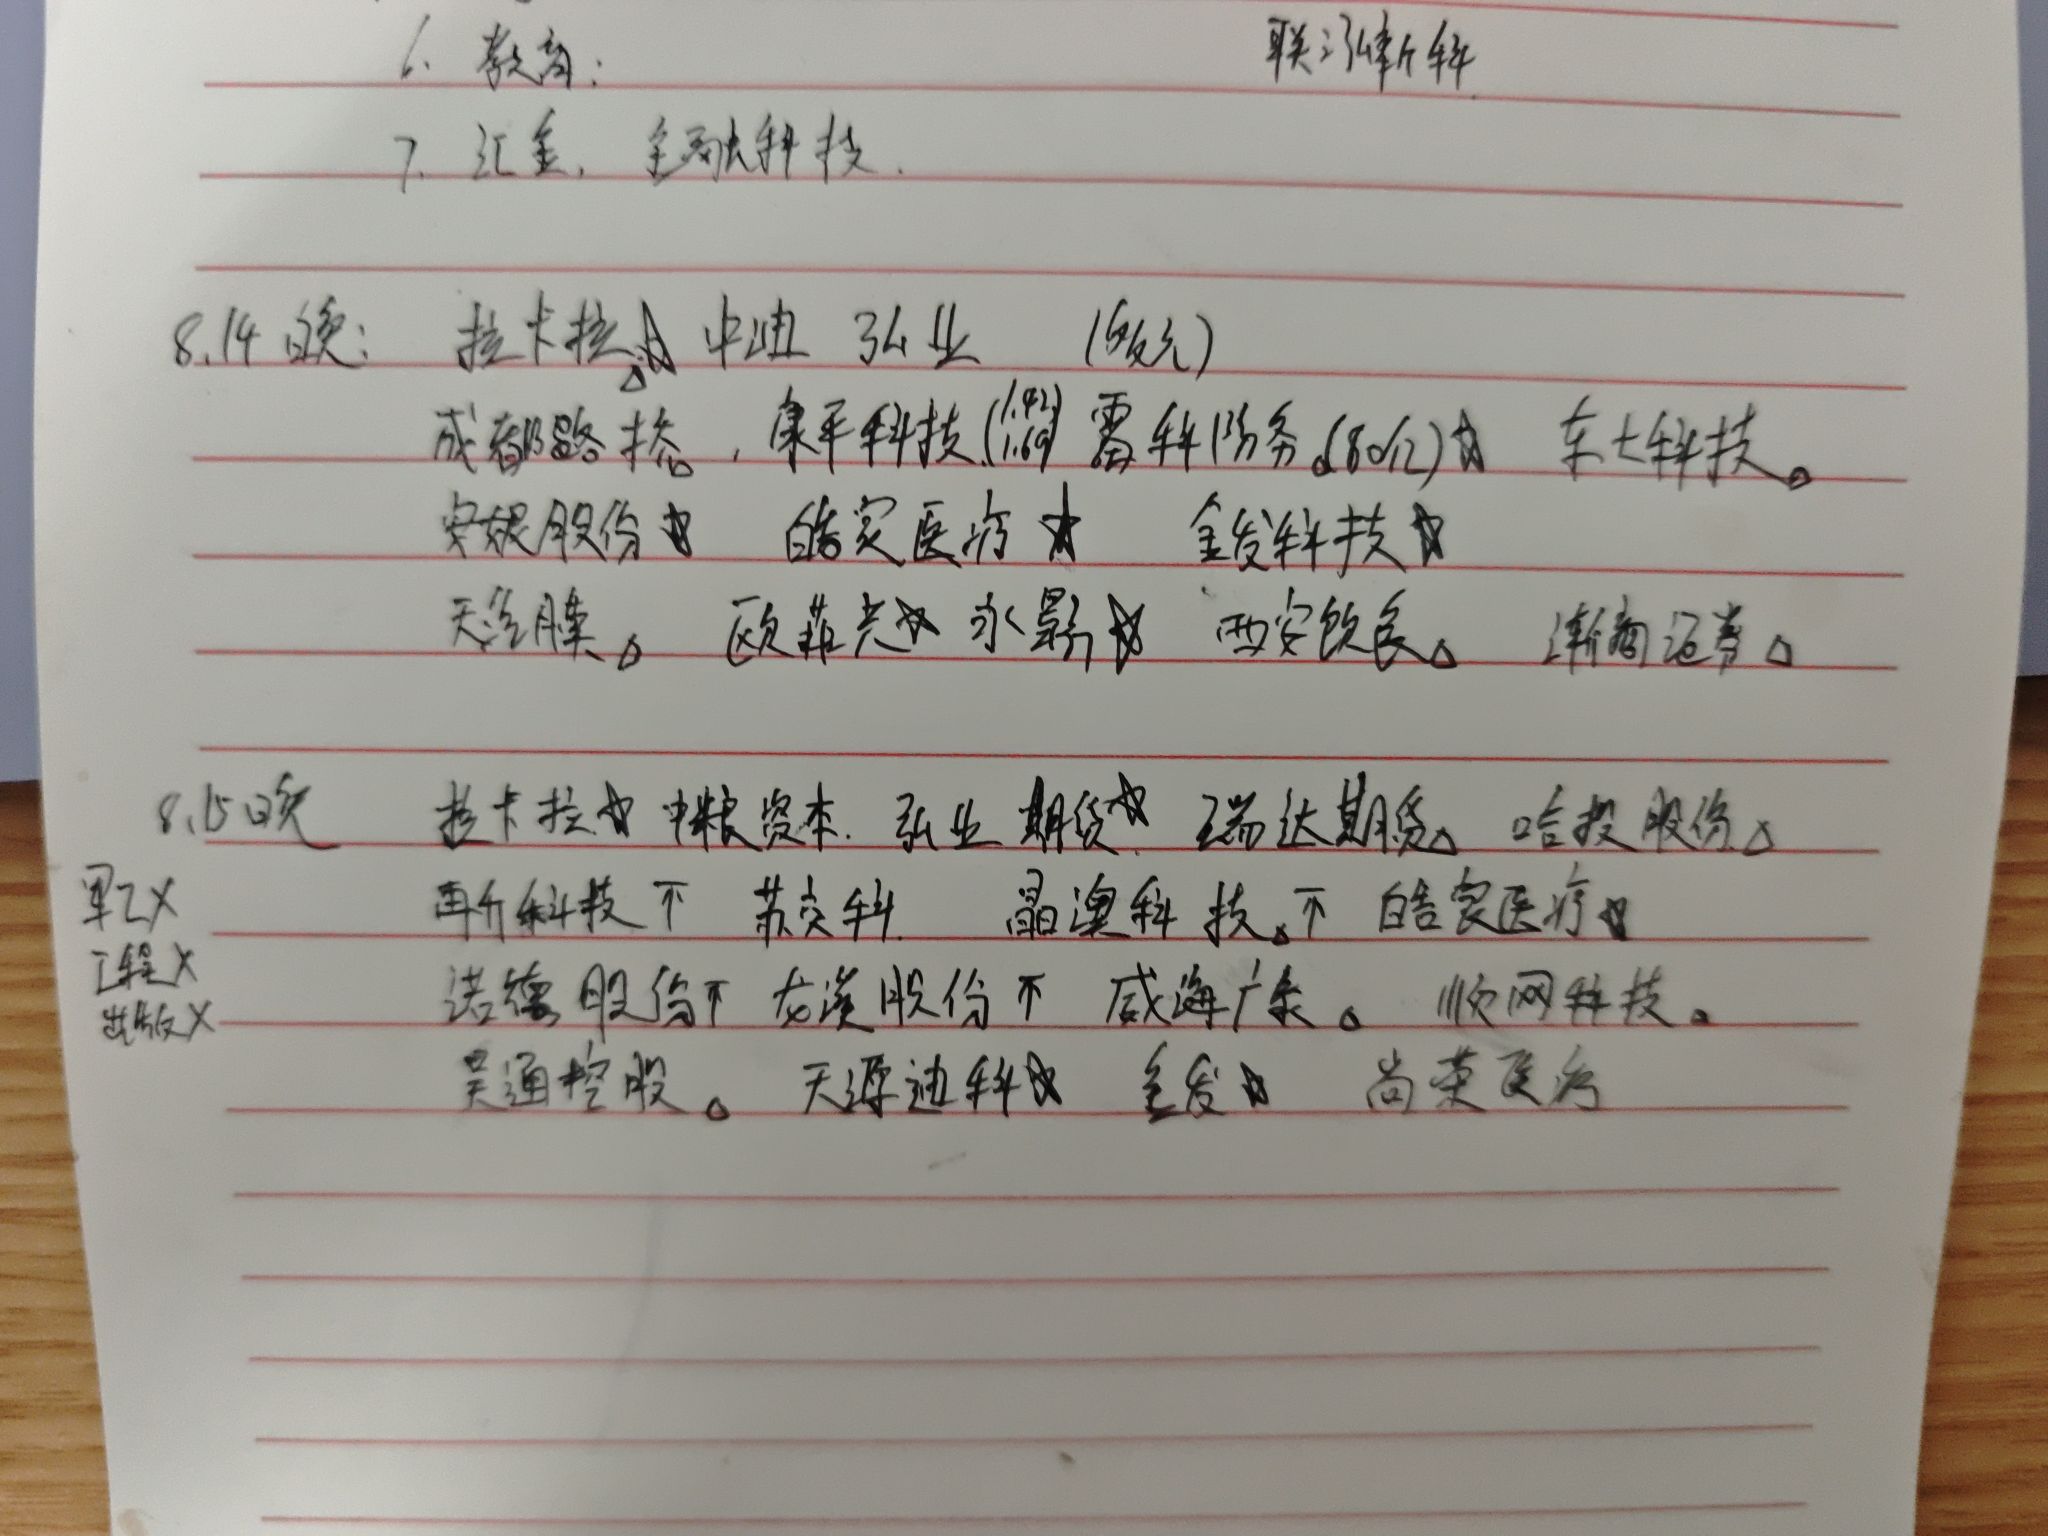 6. 教育: 联泓新科
7. 汇金, 金融科技.
8.14晚: 拉卡拉 ☆ 中迪 弘业
成都路桥, 康平科技(1.42 1.69) 雷科防务(80亿)☆ 东土科技
安妮股份☆ 皓宸医疗☆ 金发科技☆
天洋膜 欧菲光☆ 永影☆ 西安饮食 浙商证券
8.15晚 拉卡拉☆ 中粮资本. 弘业期货☆ 瑞达期货 哈投股份
军工X 再升科技 下 苏交科 晶澳科技 下 皓宸医疗☆
工程X
出版X 诺德股份下 龙溪股份下 威海广泰 顺网科技
吴通控股 天源迪科☆ 金发☆ 尚荣医疗